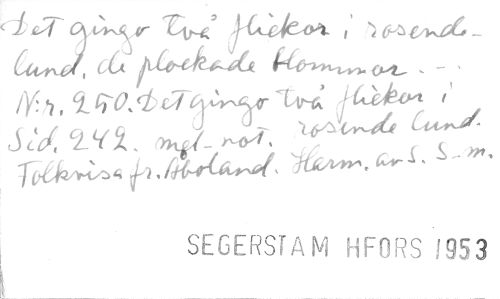 Det gingo två flickor i rosende-
lund, de plockade blommor. . -.
N:r. 250. Det gingo två flickor i
Sid. 242. mel-not. rosende lund.
Folkvisa fr. Åboland. Harm. av S. S-m.
SEGERSTAM HFORS 1953